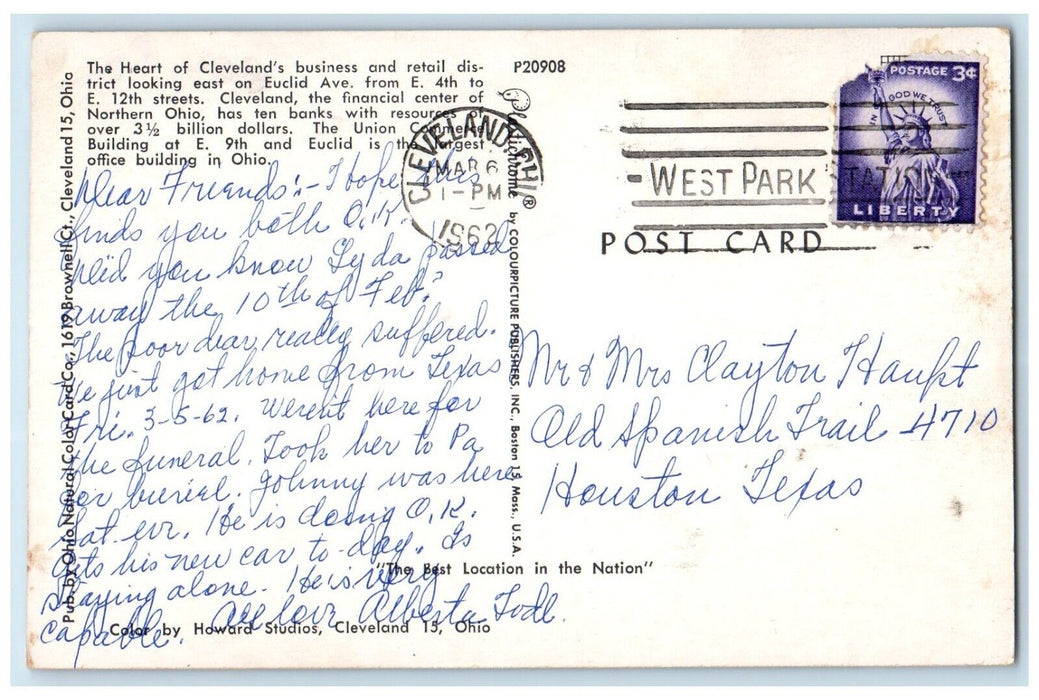 The Heart of Cleveland's business and retail dis-
trict looking east on Euclid Ave. from E. 4th to
E. 12th streets. Cleveland, the financial center of
Northern Ohio, has ten banks with resources of
over 3½ billion dollars. The Union Commerce
Building at E. 9th and Euclid is the largest
office building in Ohio.
P20908
Pub. by Ohio Natural Color Card Co., 1619 Brownell Ct., Cleveland 15, Ohio
Dear Friends:- I hope this
finds you both O.K.
Did you know Lyda passed
away the 10th of Feb?
The poor dear really suffered.
We just got home from Texas
Fri. 3-5-62. Weren't here for
the funeral. Took her to Pa
for buriel. Johnny was here
Sat. eve. He is doing O.K.
Gets his new car to-day. Is
staying alone. He is very
capable. All love Alberta
Color by Howard Studios, Cleveland 15, Ohio
"The Best Location in the Nation"
Plastichrome ® by COLOURPICTURE PUBLISHERS, INC., Boston 15, Mass., U.S.A.
CLEVELAND, OHIO
MAR 6
1-PM
1962
WEST PARK
STATION
POSTAGE 3¢
IN GOD WE TRUST
LIBERTY
POST CARD
Mr & Mrs Clayton Haupt
Old Spanish Trail 4710
Houston Texas